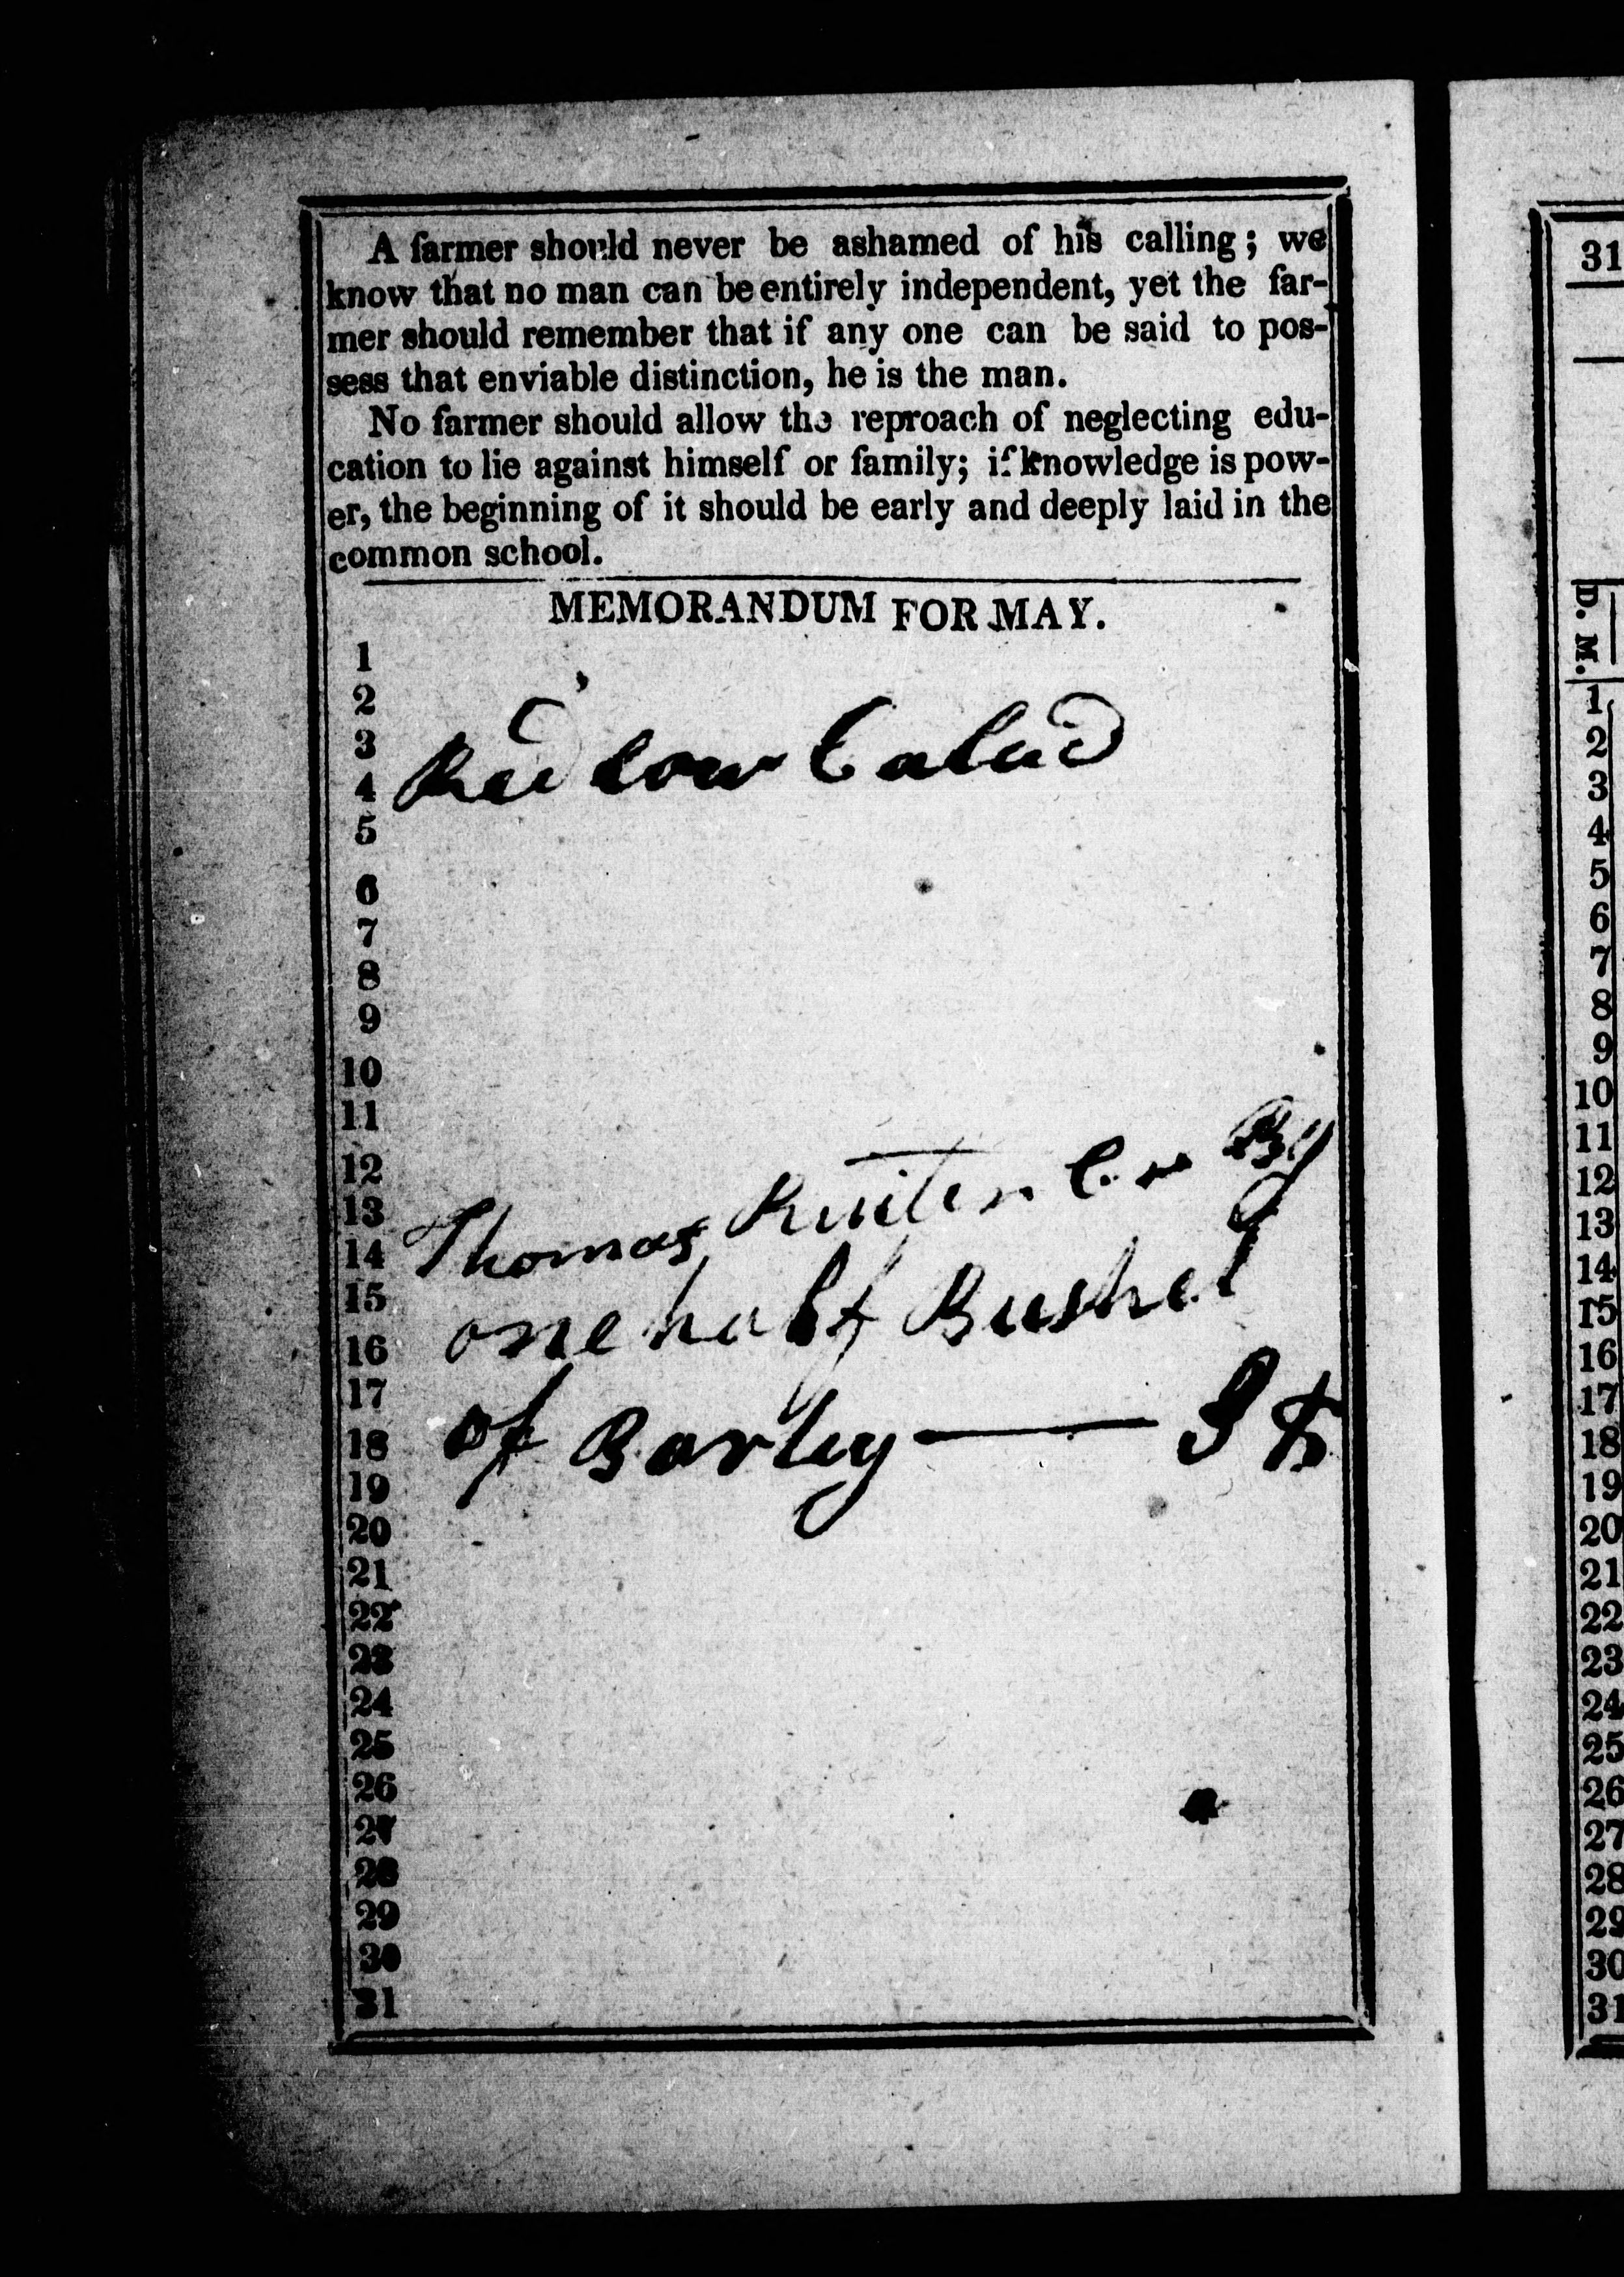 A farmer should never be ashamed of his calling; we
know that no man can be entirely independent, yet the far-
mer should remember that if any one can be said to pos-
sess that enviable distinction, he is the man.
No farmer should allow the reproach of neglecting edu-
cation to lie against himself or family; if knowledge is pow-
er, the beginning of it should be early and deeply laid in the
common school.
MEMORANDUM FOR MAY.
1
2
3 Red Cow Calved
4
5
6
7
8
9
10
11
12
13 Thomas Ruiter Cr By
14
15 one half Bushel
16
17
18 of Barley —
19
20
21
22
23
24
25
26
27
28
29
30
31
31
D. M.
1
2
3
4
5
6
7
8
9
10
11
12
13
14
15
16
17
18
19
20
21
22
23
24
25
26
27
28
29
30
31